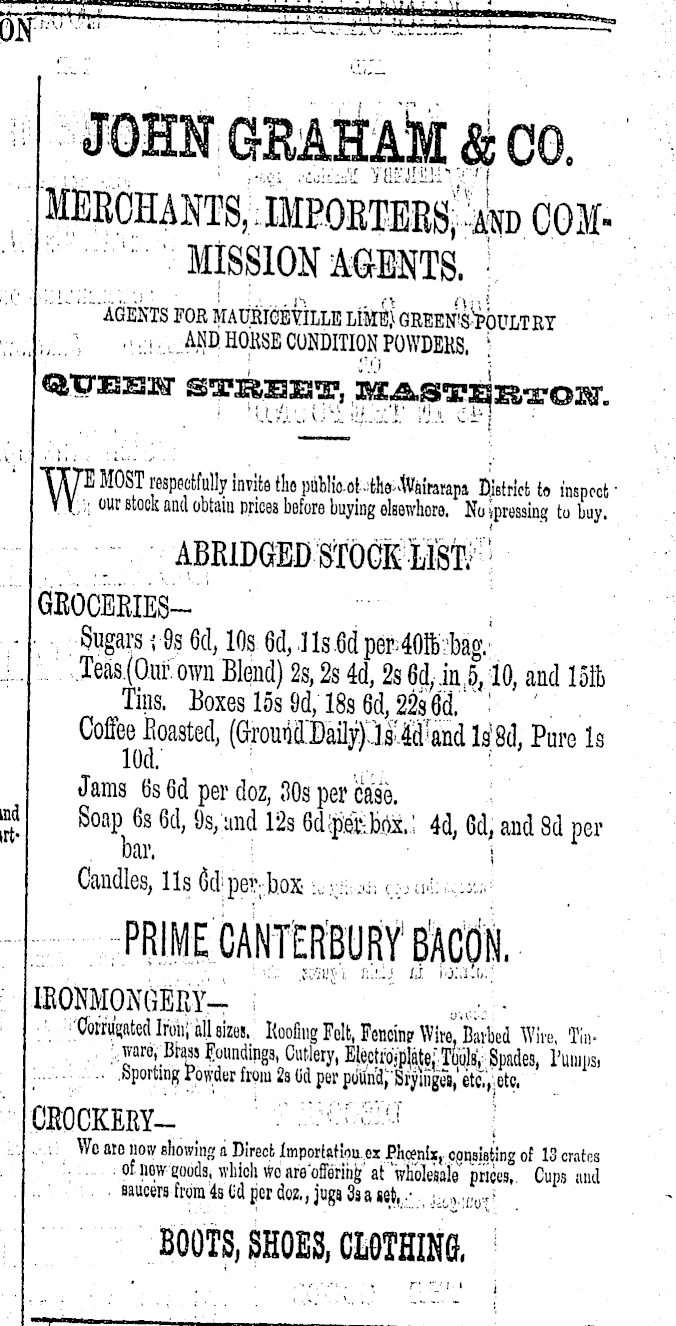 ON
JOHN GRAHAM & CO.
MERCHANTS, IMPORTERS, AND COM-
MISSION AGENTS.
AGENTS FOR MAURICEVILLE LIME, GREEN'S POULTRY
AND HORSE CONDITION POWDERS.
QUEEN STREET, MASTERTON.
WE MOST respectfully invite the public of the Wairarapa District to inspect
our stock and obtain prices before buying elsewhere. No pressing to buy.
ABRIDGED STOCK LIST.
GROCERIES—
Sugars ; 9s 6d, 10s 6d, 11s 6d per 40lb bag.
Teas (Our own Blend) 2s, 2s 4d, 2s 6d, in 5, 10, and 15lb
Tins. Boxes 15s 9d, 18s 6d, 22s 6d.
Coffee Roasted, (Ground Daily) 1s 4d and 1s 8d, Pure 1s
10d.
Jams 6s 6d per doz, 30s per case.
and
Soap 6s 6d, 9s, and 12s 6d per box. 4d, 6d, and 8d per
art-
bar.
Candles, 11s 6d per box
PRIME CANTERBURY BACON.
IRONMONGERY—
Corrugated Iron, all sizes. Roofing Felt, Fencing Wire, Barbed Wire, Tin-
ware, Brass Foundings, Cutlery, Electroplate, Tools, Spades, Pumps,
Sporting Powder from 2s 6d per pound, Sryinges, etc., etc.
CROCKERY—
We are now showing a Direct Importation ex Phœnix, consisting of 13 crates
of new goods, which we are offering at wholesale prices. Cups and
saucers from 4s 6d per doz., jugs 3s a set.
BOOTS, SHOES, CLOTHING.